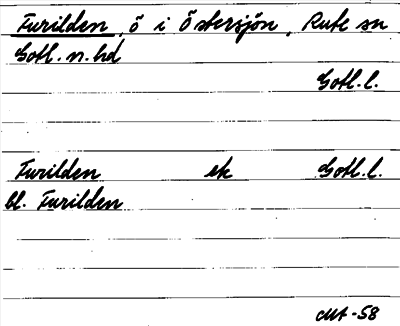 Furilden, ö i Östersjön, Rute sn
Gotl. n. hd
Gotl. l.
Furilden ek Gotl. l.
bl. Furilden
-58